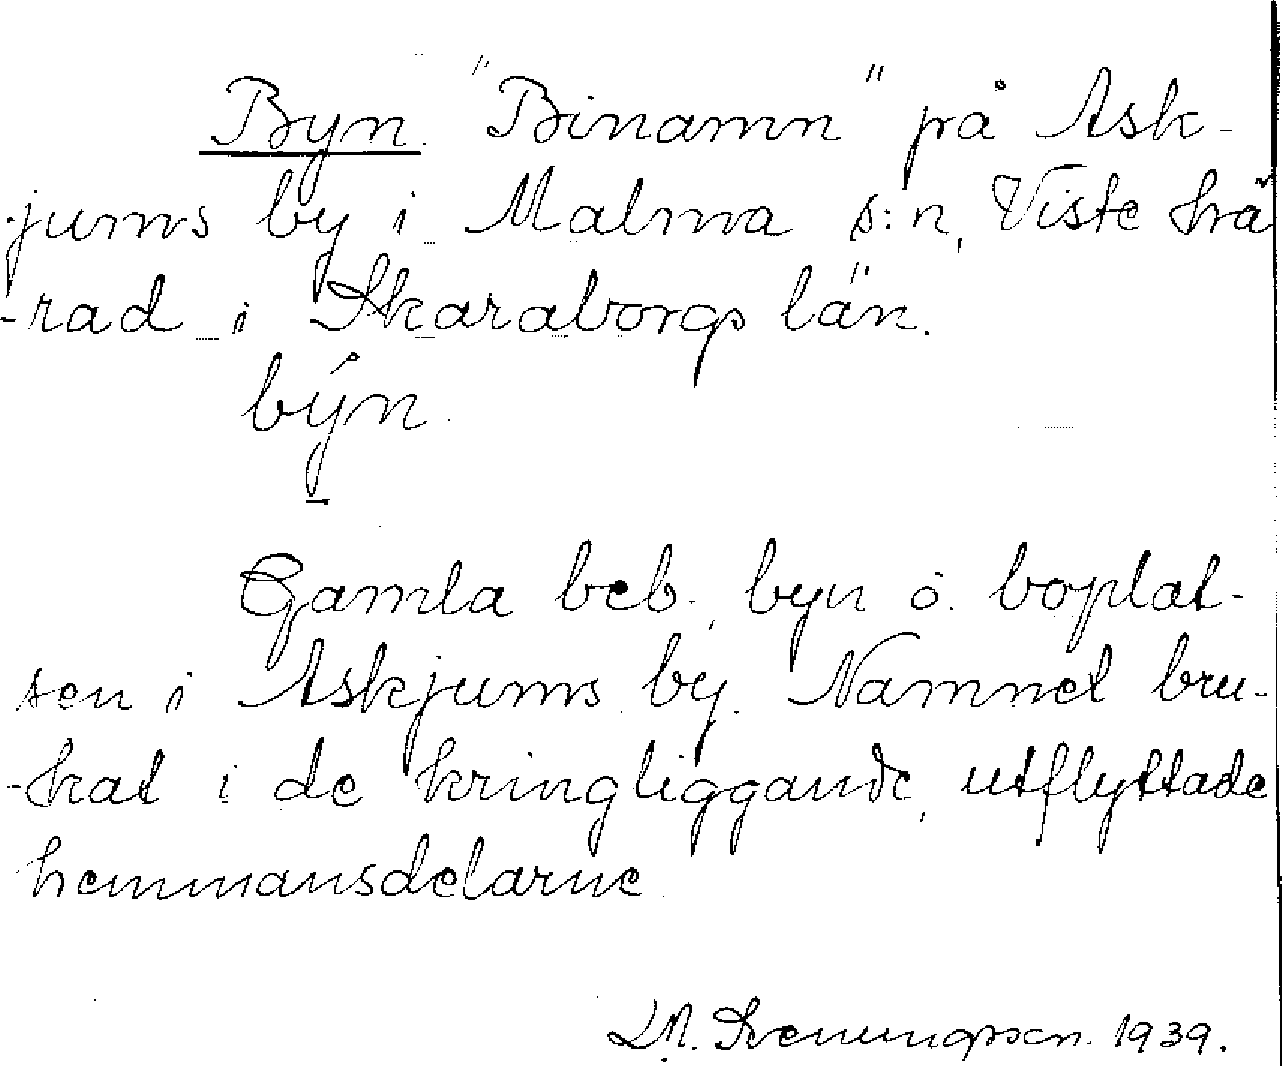 Byn. "Binamn" på Ask-
jums by i Malma s:n, Viste hä
-rad i Skaraborgs län.
býn.
Gamla beb., byn o. boplat-
sen i Askjums by. Namnet bru-
-kat i de kringliggande, utflyttade
hemmansdelarne.
1939.